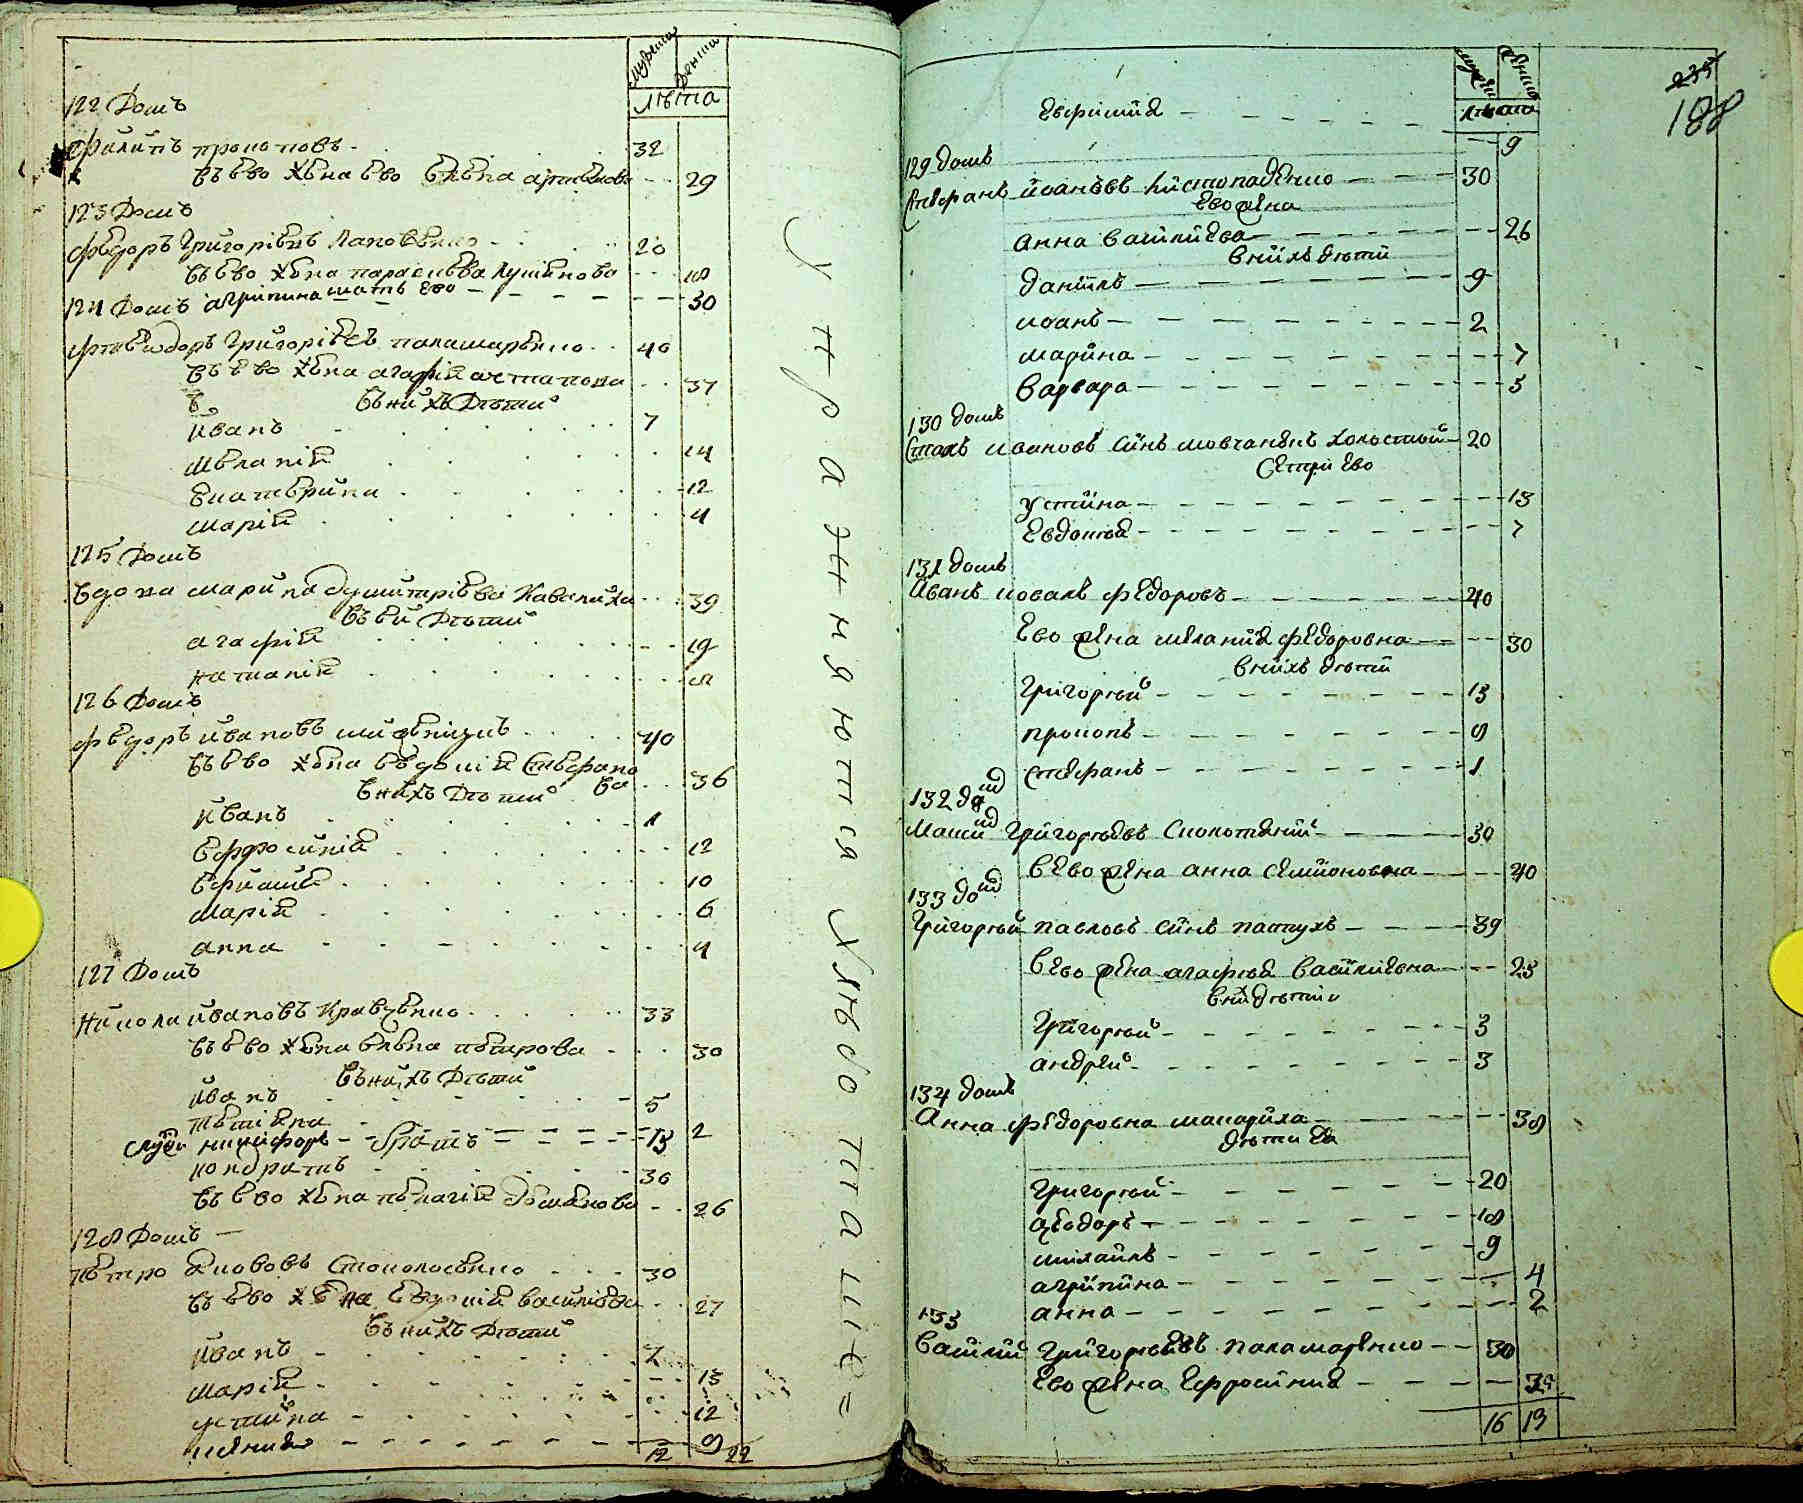 мужеска женска
лѣта
122 Домъ
Филипъ прокоповъ 32
въ ево жена ево Елена артемова 29
123 Домъ
Федоръ Григоріевъ Лаповѣнко 20
въ ево жена параскева 18
124 Домъ агрипина мать ево 30
Григоріевъ паламаренко 40
въ ево жена агафія астапова 37
въ нихъ Дѣти
Иванъ 7
Меланія 14
Екатерина 12
Марія 4
125 Домъ
вдова марина дмитріева 39
въ ей Дѣти
агафія 19
наталія
126 Домъ
Федоръ ивановъ 40
въ ево жена Евдокія Стефано
ва 36
в нихъ Дѣти
Иванъ 1
Ефросинія 12
Ефимія 10
Марія 6
анна 4
127 Домъ
Никола ивановъ Кравченко 33
въ ево жена Елена петрова 30
въ нихъ Дѣти
Иванъ 5
2
никифоръ братъ 13
кондратъ 30
въ ево жена пелагія 26
128 Домъ
Петро якововъ Стоколосенко 30
въ ево жена Евдокія василіева 27
въ нихъ Дѣти
Иванъ 7
Марія 13
устина 12
9
12 22
У п р а ж н я ю т с я Х л ѣ б о п а ш е =
235
188
лѣта
Евфимия 9
129 домъ
Стефанъ иоановъ листопаденко 30
Ево жена
анна василиева 26
в нихъ дѣти
данилъ 9
иоанъ 2
марина 7
варвара 5
130 домъ
ивановъ синъ мовчанъ холостий 20
Сестри Ево
устина 13
Евдокия 7
131 домъ
Иванъ коваль федоровъ 40
Ево жена мелания федоровна 30
в нихъ дѣти
Григорий 13
прокопъ 8
стефанъ 1
132 до
Григориевъ 30
в Ево жена анна семионовна 40
133 до
Григорий павловъ синъ пастухъ 39
в Ево жена агафия василиевна 25
в ни дѣти
Григорий 3
андрей 3
134 домъ
Анна федоровна макариха 38
дѣти Ея
Григорий 20
федоръ 18
михаилъ 9
агрипина 4
анна 2
135
Василий Григориевъ паламаренко 30
Ево жена Ефросиния
16 19